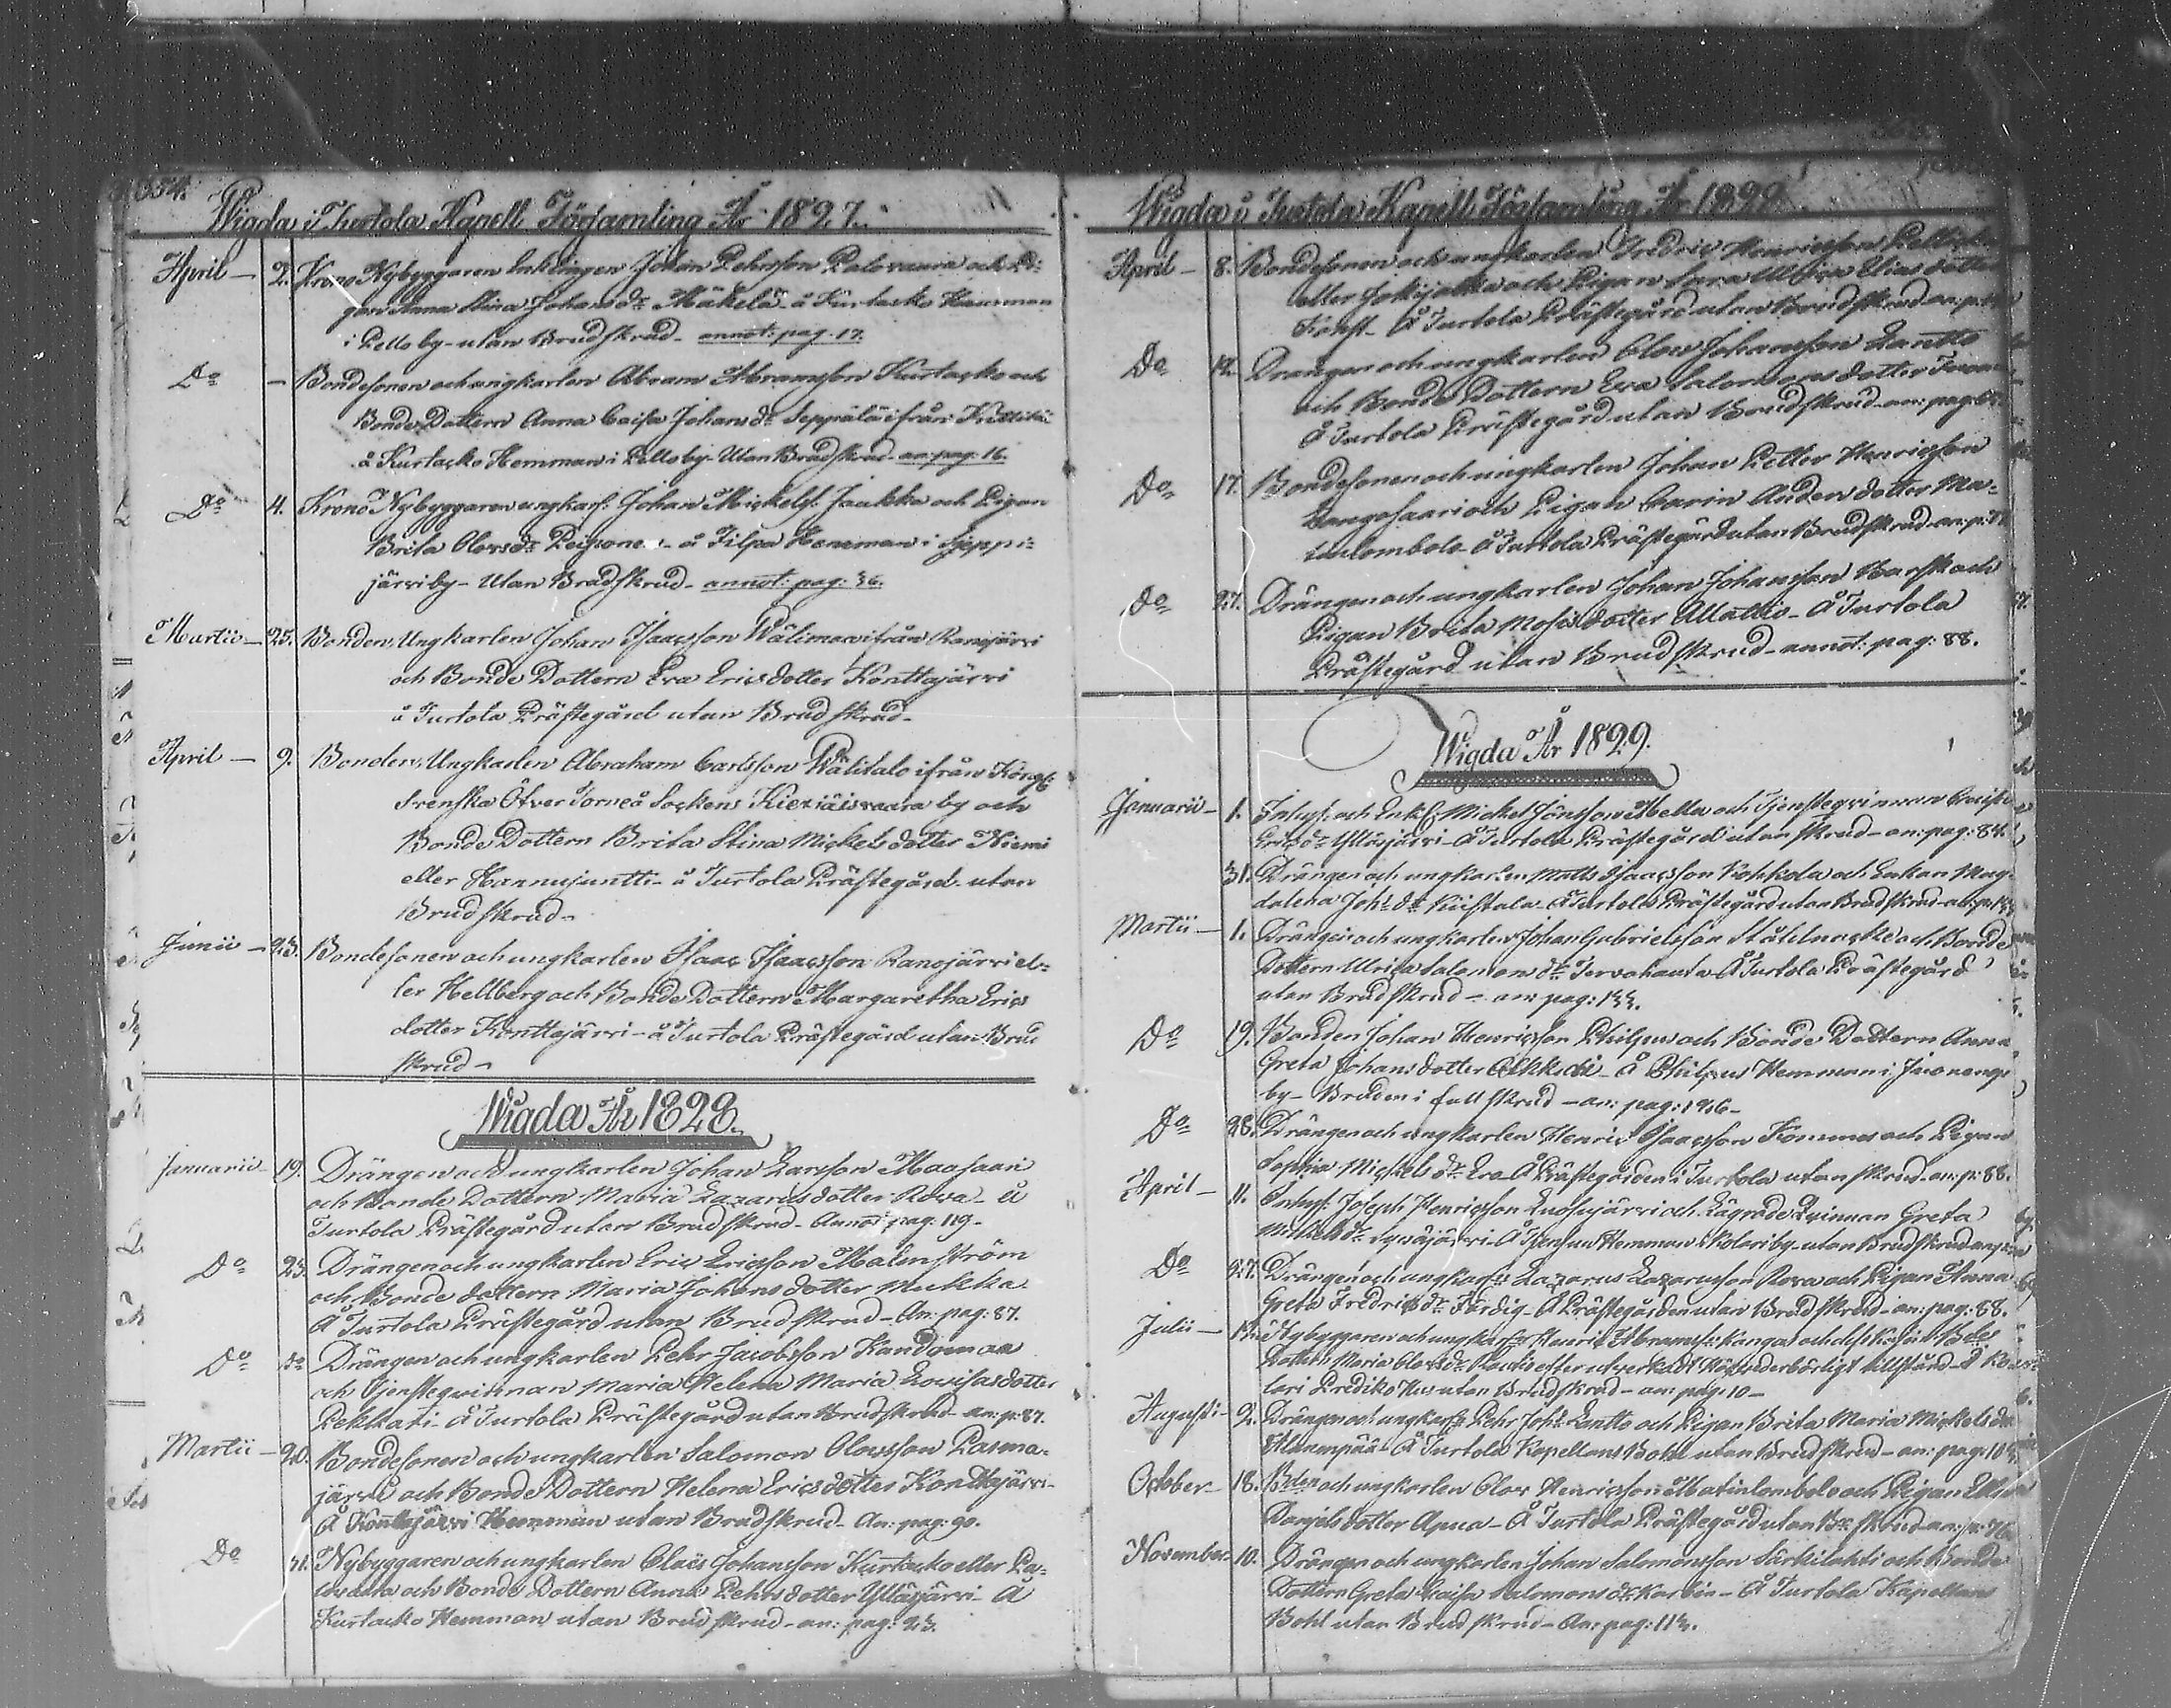 354.
Wigda i Turtola Kapell Församling År 1827.
April — 2. Krono Nybyggaren Enklingen Johan Pehrsson Palovaara och Pi-
gan Anna Stina Johansdr Mäkelä å Kurtacko Hemman
i Pello by - utan Brudskrud - annot: pag. 17.
Do — Bondesonen och ungkarlen Abram Abramsson Kurtacko och
Bonde Dottern Anna Caisa Johansdr Seppälä ifrån
å Kurtacko Hemman i Pello by - Utan Brudskrud - an: pag. 16.
Do 4. Krono Nybyggaren ungkarl: Johan Mickelss. Jaukka och Pigan
Brita Olovsdr - å Filpa Hemman i Sieppi-
järvi by - Utan Brudskrud - annot: pag: 36.
Martii — 25. Bonden, Ungkarlen Johan Isaacsson Wälimaa ifrån Ranojärvi
och Bonde Dottern Eva Ericsdotter Konttajärvi
å Turtola Prästegård utan Brudskrud -
April — 9. Bonden, Ungkarlen Abraham Carlsson Wälitalo ifrån Kongl:
Svenska Öfver Torneå Sockens Kiexiäisvaara by och
Bonde Dottern Brita Stina Mickelsdotter Niemi
eller Hannujuntti - å Turtola Prästegård utan
Brudskrud -
Junii — 23. Bondesonen och ungkarlen Isaac Isaacsson Ranojärvi el-
ler Hellberg och Bonde Dottern Margaretha Erics
dotter Konttajärvi - å Turtola Prästegård utan Brud
skrud -
Wigda År 1828.
Januarii — 19. Drängen och ungkarlen Johan Larsson Maasaari
och Bonde Dottern Maria Lazarusdotter Rova - å
Turtola Prästegård utan Brudskrud - Annot: pag: 119 -
Do 23. Drängen och ungkarlen Eric Ericsson Malmström
och Bonde dottern Maria Johansdotter Mukka
Å Turtola Prästegård utan Brudskrud - An: pag: 87.
Do do Drängen och ungkarlen Pehr Jacobsson Kandomaa
och Tjensteqvinnan Maria Helena Maria Lovisasdotter
Pekkati - Å Turtola Prästegård utan Brudskrud - an: p: 87.
Martii — 20. Bondesonen och ungkarlen Salomon Olovsson Pasma-
järvi och Bonde Dottern Helena Ericsdotter Konttajärvi -
Å Konttajärvi Hemman utan Brudskrud - An: pag: 90.
Do 21. Nybyggaren och ungkarlen Johansson Kurtacko eller Pa-
lovaara och Bonde Dottern Anna Pehrsdotter Ylläsjärvi - Å
Kurtacko Hemman utan Brudskrud - an: pag: 23.
Wigda i Turtola Kapell Församling År 1828
April — 8. Bondesonen och ungkarlen Fredric Henricsson
eller och Pigan Sara Ulrica Eliasdotter
Å Turtola Prästegård utan Brudskrud - an: p:
Do 12. Drängen och ungkarlen Olov Johansson Lantto
och Bonde Dottern Eva Salomonsdotter
Å Turtola Prästegård utan Brudskrud - an: pag:
Do 17. Bondesonen och ungkarlen Johan Petter Henricsson
Kangosaari och Pigan Carin Andersdotter Ma-
tinlombolo - Å Turtola Prästegård utan Brudskrud - an: p:
Do 27. Drängen och ungkarlen Johan Johansson Barsk och
Pigan Brita Mosisdotter Alattio - Å Turtola
Prästegård utan Brudskrud - annot: pag: 88.
Wigda År 1829.
Januarii — 1. Inhys: och Enkl: Mickel Jönsson Mella och Tjensteqvinnan Caisa
Ericsdr Ylläsjärvi - Å Turtola Prästegård utan skrud - an: pag: 84.
31. Drängen och ungkarlen Matts Isaacsson Kohkola och Enkan Mag-
dalena Johsdr - Å Turtola Prästegård utan Brudskrud -
Martii — 1. Drängen och ungkarlen Johan Gabrielsson Stålnacke och Bonde
Dottern Ulrica Salomonsdr Tervahauta - Å Turtola Prästegård
utan Brudskrud - an: pag: 133.
Do 19. Bonden Johan Henricsson Philpus och Bonde Dottern Anna
Greta Johansdotter - Å Philpus Hemman i Juoxengi
by - Bruden i full skrud - an: pag: 146 -
Do 28. Drängen och ungkarlen Henric Isaacsson Kommes och Pigan
Sophia Mickelsdr Era - Å Prästegården i Turtola utan skrud - an: p: 88.
April — 11. Inhys: Joseph Henricsson Luosujärvi och Lägrade Qvinnan Greta
Mickelsdr - Å Hemman i Kolari by - utan Brudskrud
Do 27. Drängen och ungkarlen Lazarus Lazarusson Rova och Pigan Anna
Greta Fredricsdr Färdig - Å Prästegården utan Brudskrud - an: pag: 88.
Julii — 12. Nybyggaren och ungkarlen Henric Abramss: Kangas och
Dottern Maria Olovsdr efter utverkadt tillstånd - Å Ko-
lari Prediko Hus utan Brudskrud - an: pag: 10 -
Augusti — 2. Drängen och ungkarlen Pehr Johs: Lantto och Pigan Brita Maria Mickelsdr
Alanenpää - Å Turtola Kapellans Bohl utan Brudskrud - an: pag:
October — 18. och ungkarlen Olov Henricsson Matinlombolo och Pigan
Danjelsdotter Apua - Å Turtola Prästegård utan Br: skrud - an: p: 76
November 10. Drängen och ungkarlen Johan Salomonsson Särkilahti och Bonde
Dottern Greta Caisa Salomonsdr Karbin - Å Turtola Kapellans
Bohl utan Brudskrud - An: pag: 113.